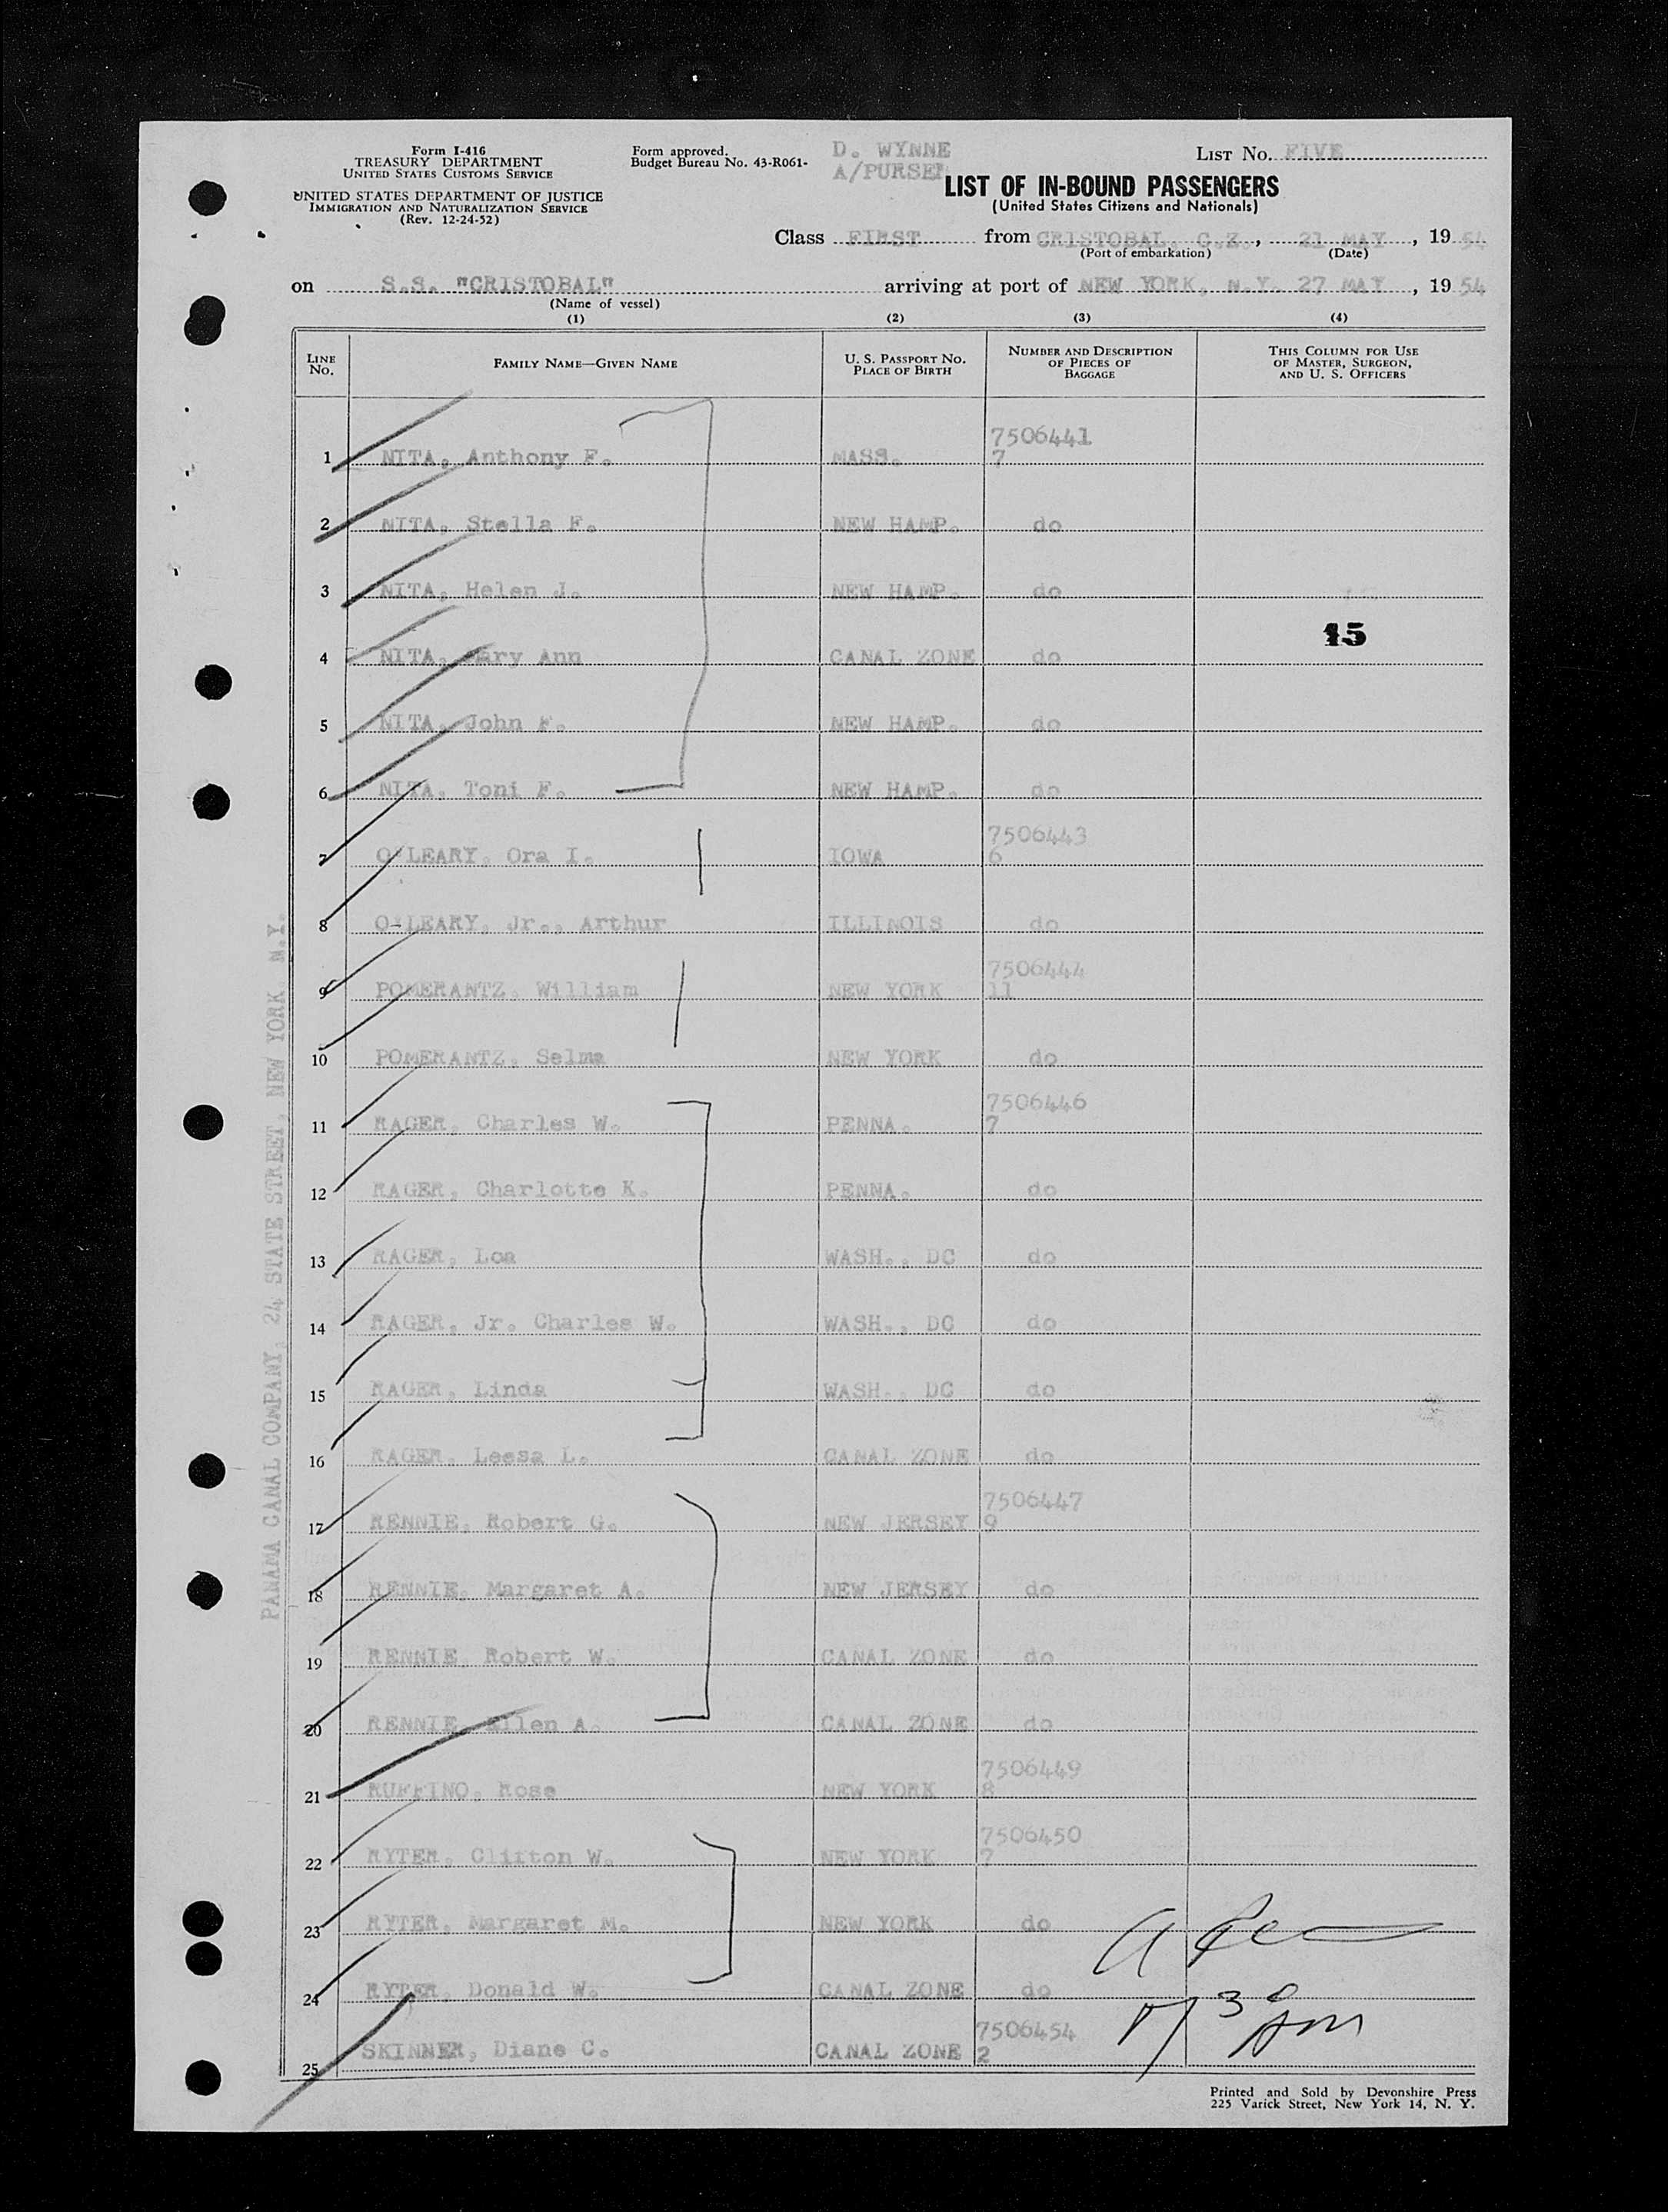 Form I-416
TREASURY DEPARTMENT
UNITED STATES CUSTOMS SERVICE
UNITED STATES DEPARTMENT OF JUSTICE
IMMIGRATION AND NATURALIZATION SERVICE
(Rev. 12-24-52)
Form approved.
Budget Bureau No. 43-R061-
D. WYNNE
A/PURSER
LIST NO. FIVE
LIST OF IN-BOUND PASSENGERS
(United States Citizens and Nationals)
Class FIRST from CRISTOBAL, C.Z., 21 MAY, 19 54
(Port of embarkation) (Date)
on S.S. "CRISTOBAL" arriving at port of NEW YORK, N.Y. 27 MAY, 19 54
(Name of vessel)
(1) (2) (3) (4)
LINE NO. FAMILY NAME—GIVEN NAME U. S. PASSPORT NO. PLACE OF BIRTH NUMBER AND DESCRIPTION OF PIECES OF BAGGAGE THIS COLUMN FOR USE OF MASTER, SURGEON, AND U. S. OFFICERS
7506441
1 NITA, Anthony F. MASS. 7
2 NITA, Stella F. NEW HAMP. do
3 NITA, Helen J. NEW HAMP. do
15
4 NITA, Mary Ann CANAL ZONE do
5 NITA, John F. NEW HAMP. do
6 NITA, Toni F. NEW HAMP. do
7506443
7 O'LEARY, Ora I. IOWA 6
8 O'LEARY, Jr., Arthur ILLINOIS do
7506444
9 POMERANTZ, William NEW YORK 11
10 POMERANTZ, Selma NEW YORK do
7506446
11 RAGER, Charles W. PENNA. 7
12 RAGER, Charlotte K. PENNA. do
13 RAGER, Loa WASH., DC do
14 RAGER, Jr. Charles W. WASH., DC do
15 RAGER, Linda WASH., DC do
16 RAGER, Leesa L. CANAL ZONE do
7506447
17 RENNIE, Robert G. NEW JERSEY 9
18 RENNIE, Margaret A. NEW JERSEY do
19 RENNIE, Robert W. CANAL ZONE do
20 RENNIE, Ellen A. CANAL ZONE do
7506449
21 RUFFINO, Rose NEW YORK 8
7506450
22 RYTER, Clifton W. NEW YORK 7
23 RYTER, Margaret M. NEW YORK do
24 RYTER, Donald W. CANAL ZONE do
7506454
25 SKINNER, Diane C. CANAL ZONE 2
PANAMA CANAL COMPANY, 24 STATE STREET, NEW YORK N.Y.
Printed and Sold by Devonshire Press
225 Varick Street, New York 14, N. Y.